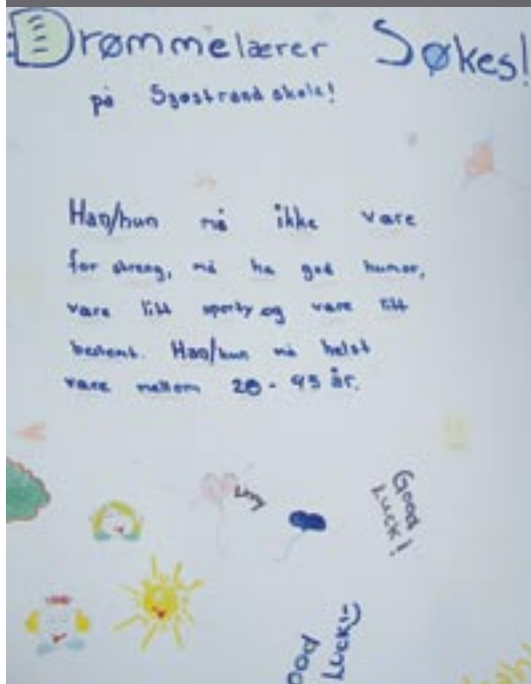 Drømmelærer Søkes!
på Sjøstrand skole!
Han/hun må ikke vare
for streng, må ha god humor,
vare litt sporty og vare litt
bestemt. Han/hun må helst
vare mellom 20-45 år.
Good
Luck!
Good
Luck!